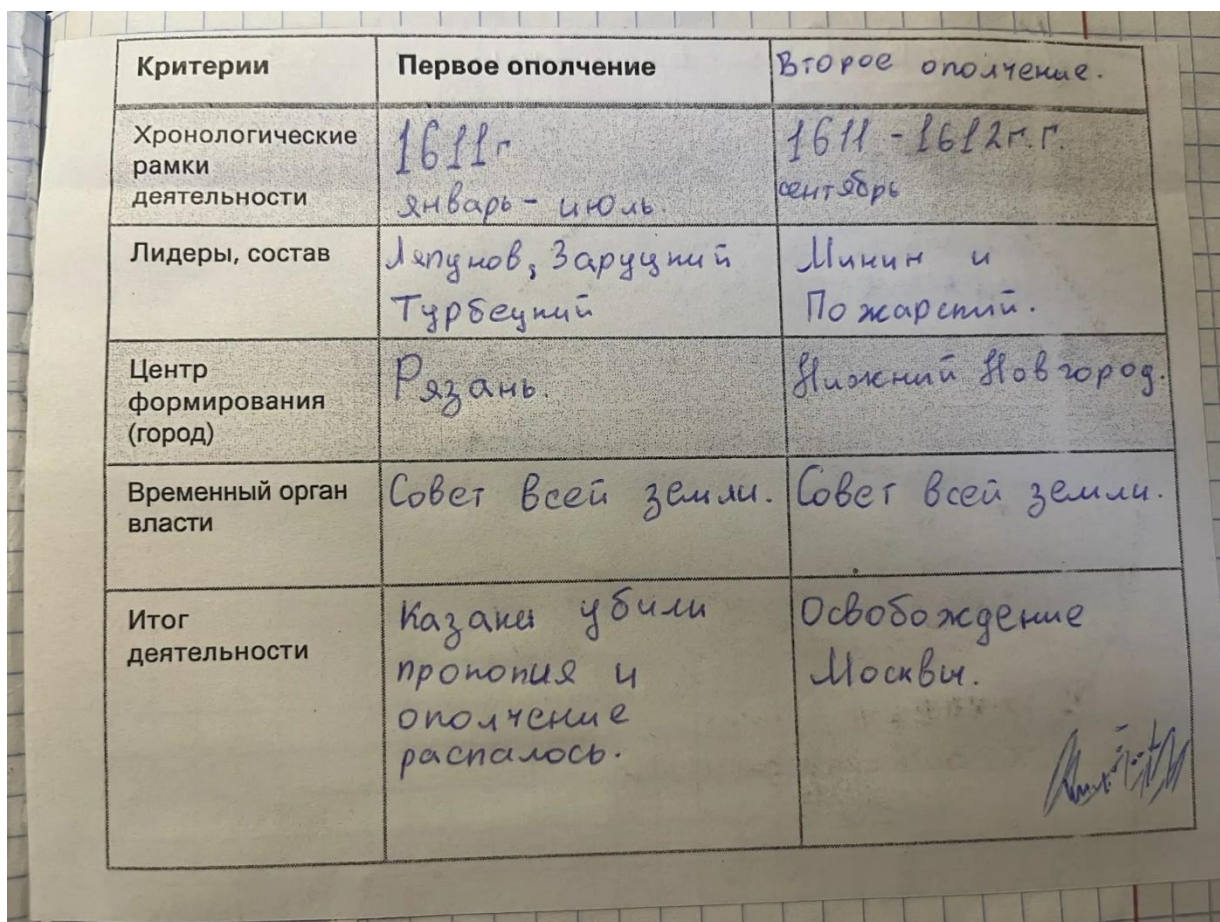 Критерии
Первое ополчение
Второе ополчение.
Хронологические
рамки
деятельности
1611г
январь - июль.
1611 - 1612г.г.
сентябрь
Лидеры, состав
Ляпунов, Заруцкий
Турбецкий
Минин и
Пожарский.
Центр
формирования
(город)
Рязань.
Нижний Новгород.
Временный орган
власти
Совет всей земли.
Совет всей земли.
Итог
деятельности
Казаки убили
прокопия и
ополчение
распалось.
Освобождение
Москвы.